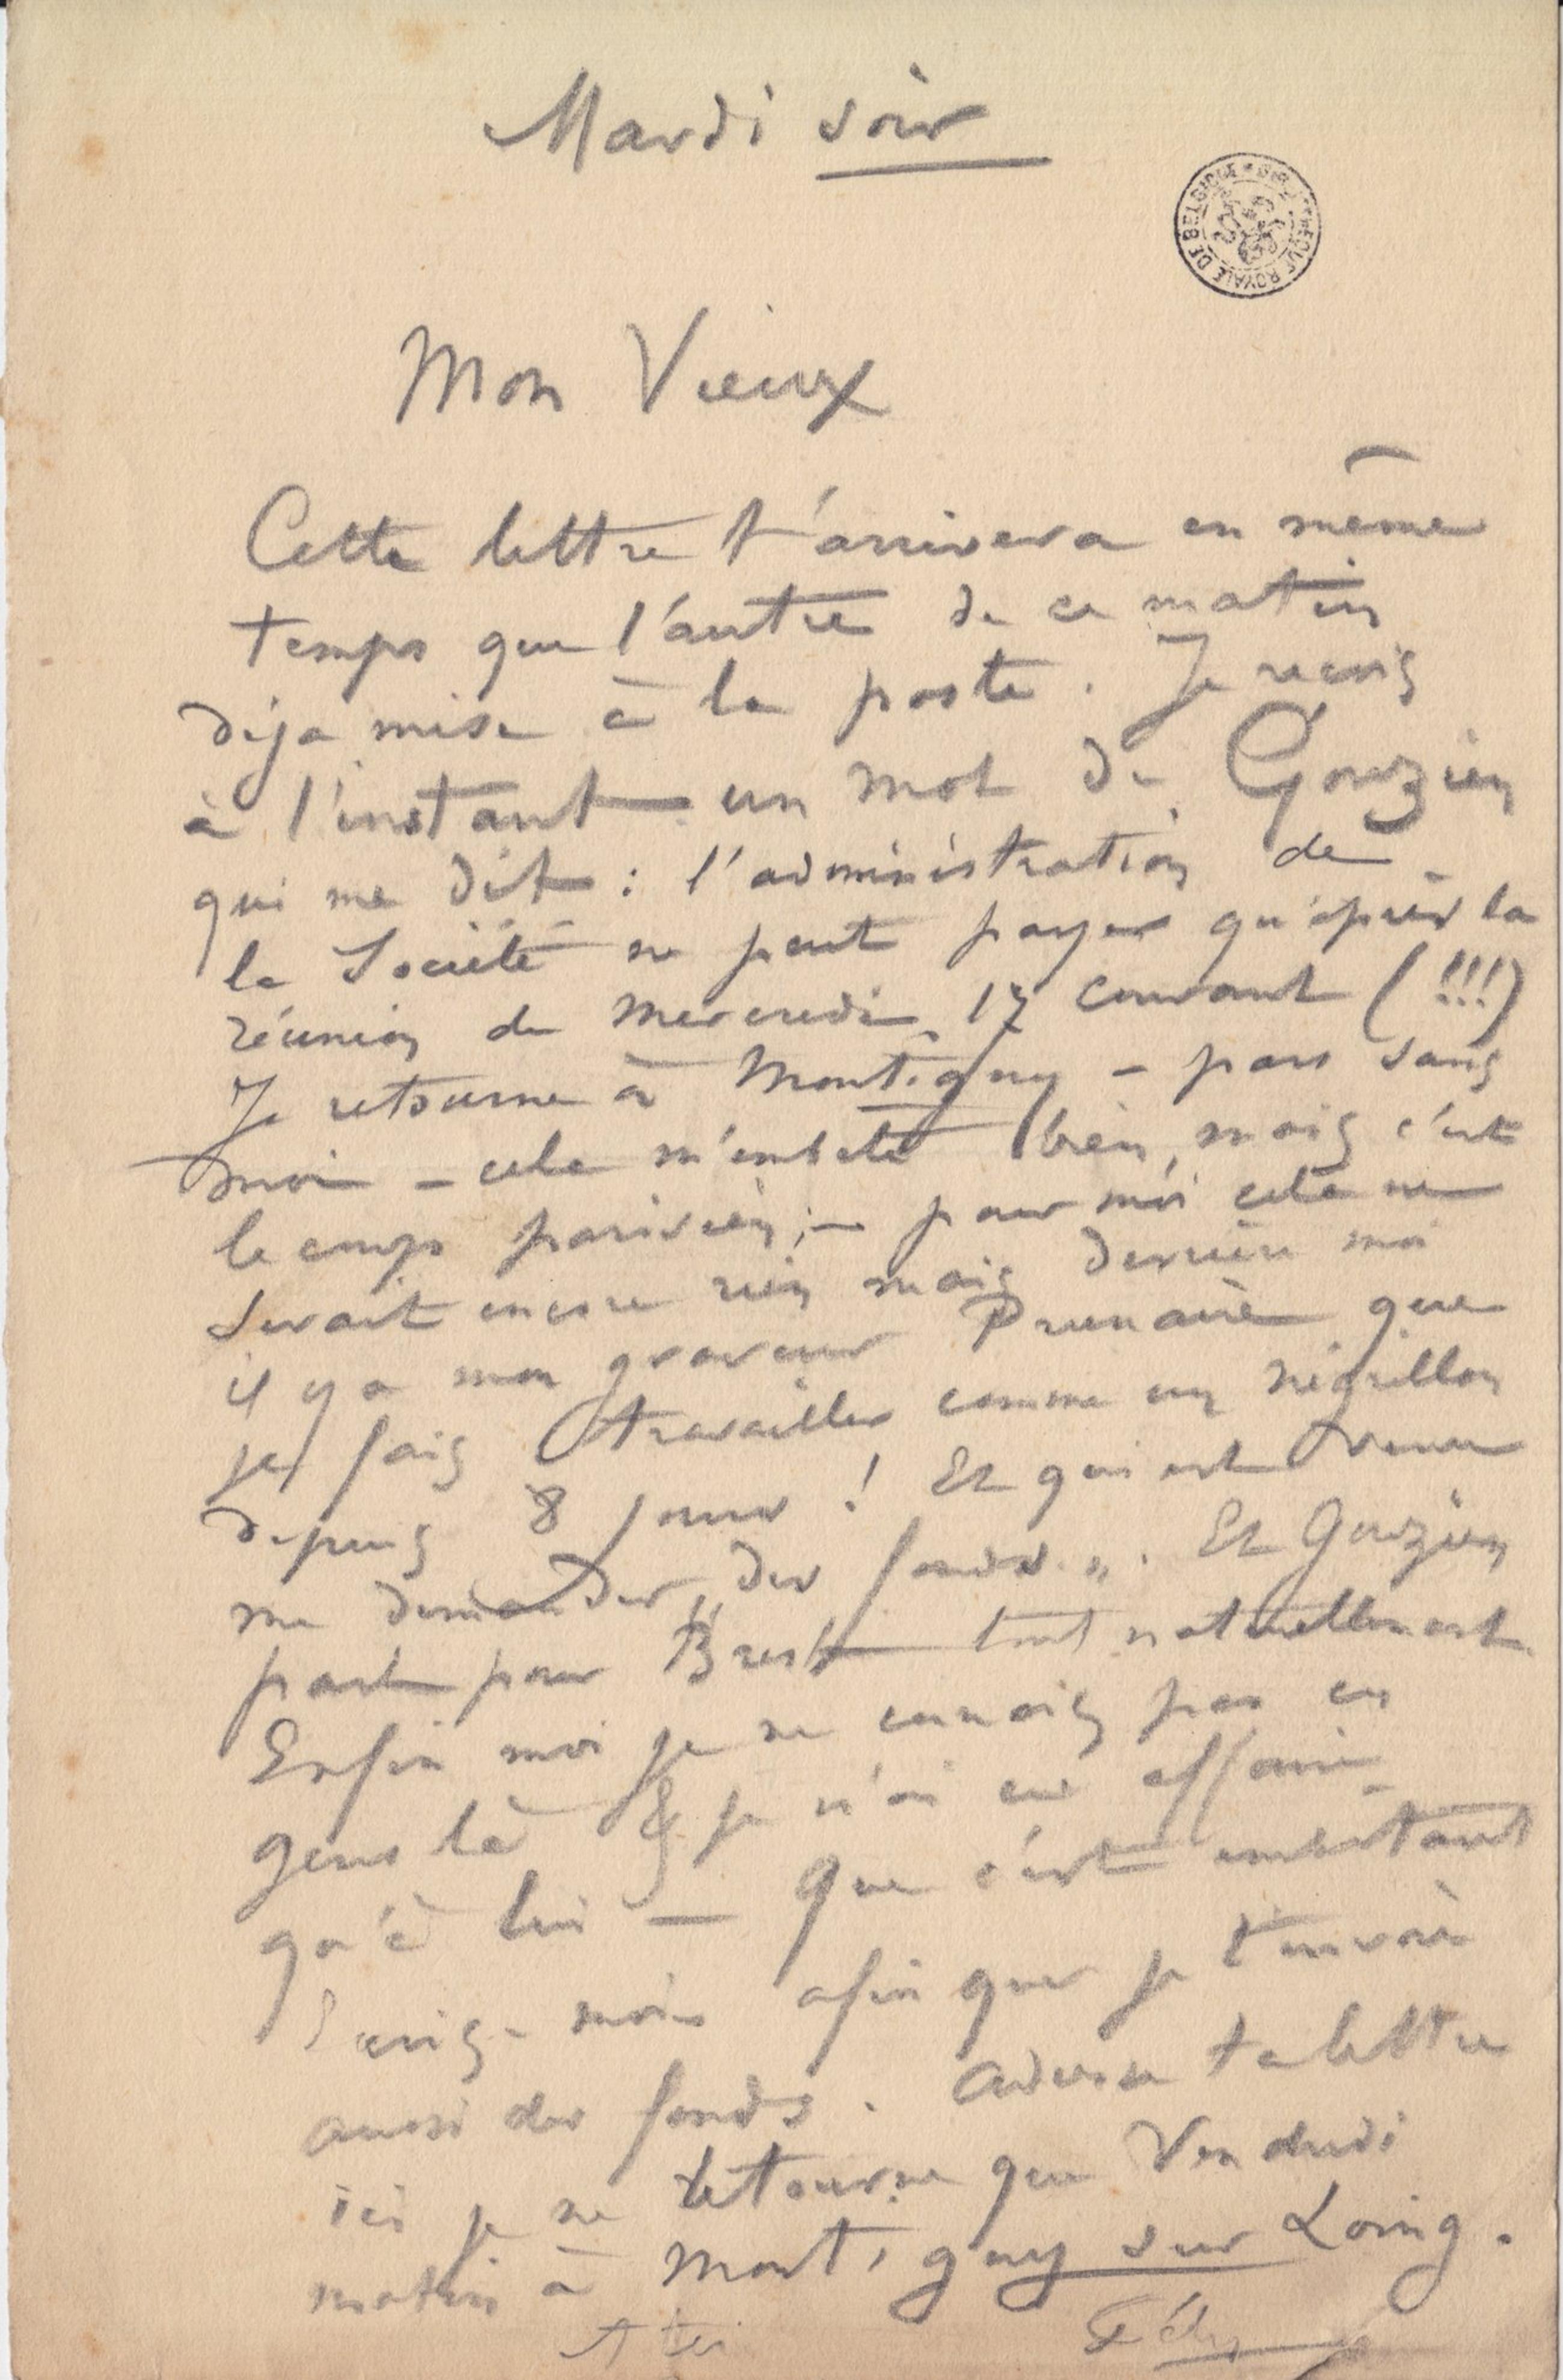 Mardi soir
BIBLIOTHEQUE ROYALE DE BELGIQUE
Mon Vieux
Cette lettre t'arrivera en même
temps que l'autre de ce matin
déja mise à la poste. Je reçois
à l'instant un mot de Gouzien
qui me dit : l'administration de
la Société ne peut payer qu'après la
réunion de mercredi 17 courant (!!!)
Je retourne à Montigny – pars sans
moi – cela m'embete bien, mais c'est
le coup parisien; – pour moi cela ne
serait encore rien mais derrière moi
il y a mon graveur Prunaire que
je fais travailler comme un négrillon
depuis 8 jours ! Et qui est venu
me demander „des fonds„. Et Gouzien
part pour Brest tout naturellement
Enfin moi je ne connais pas ces
gens là & je n'ai eu affaire
qu'à lui – que c'est embêtant
Ecris-moi afin que je t'envoie
aussi des fonds. Adresse ta lettre
ici je ne retourne que Vendredi
matin à Montigny sur Loing.
A toi
Fély